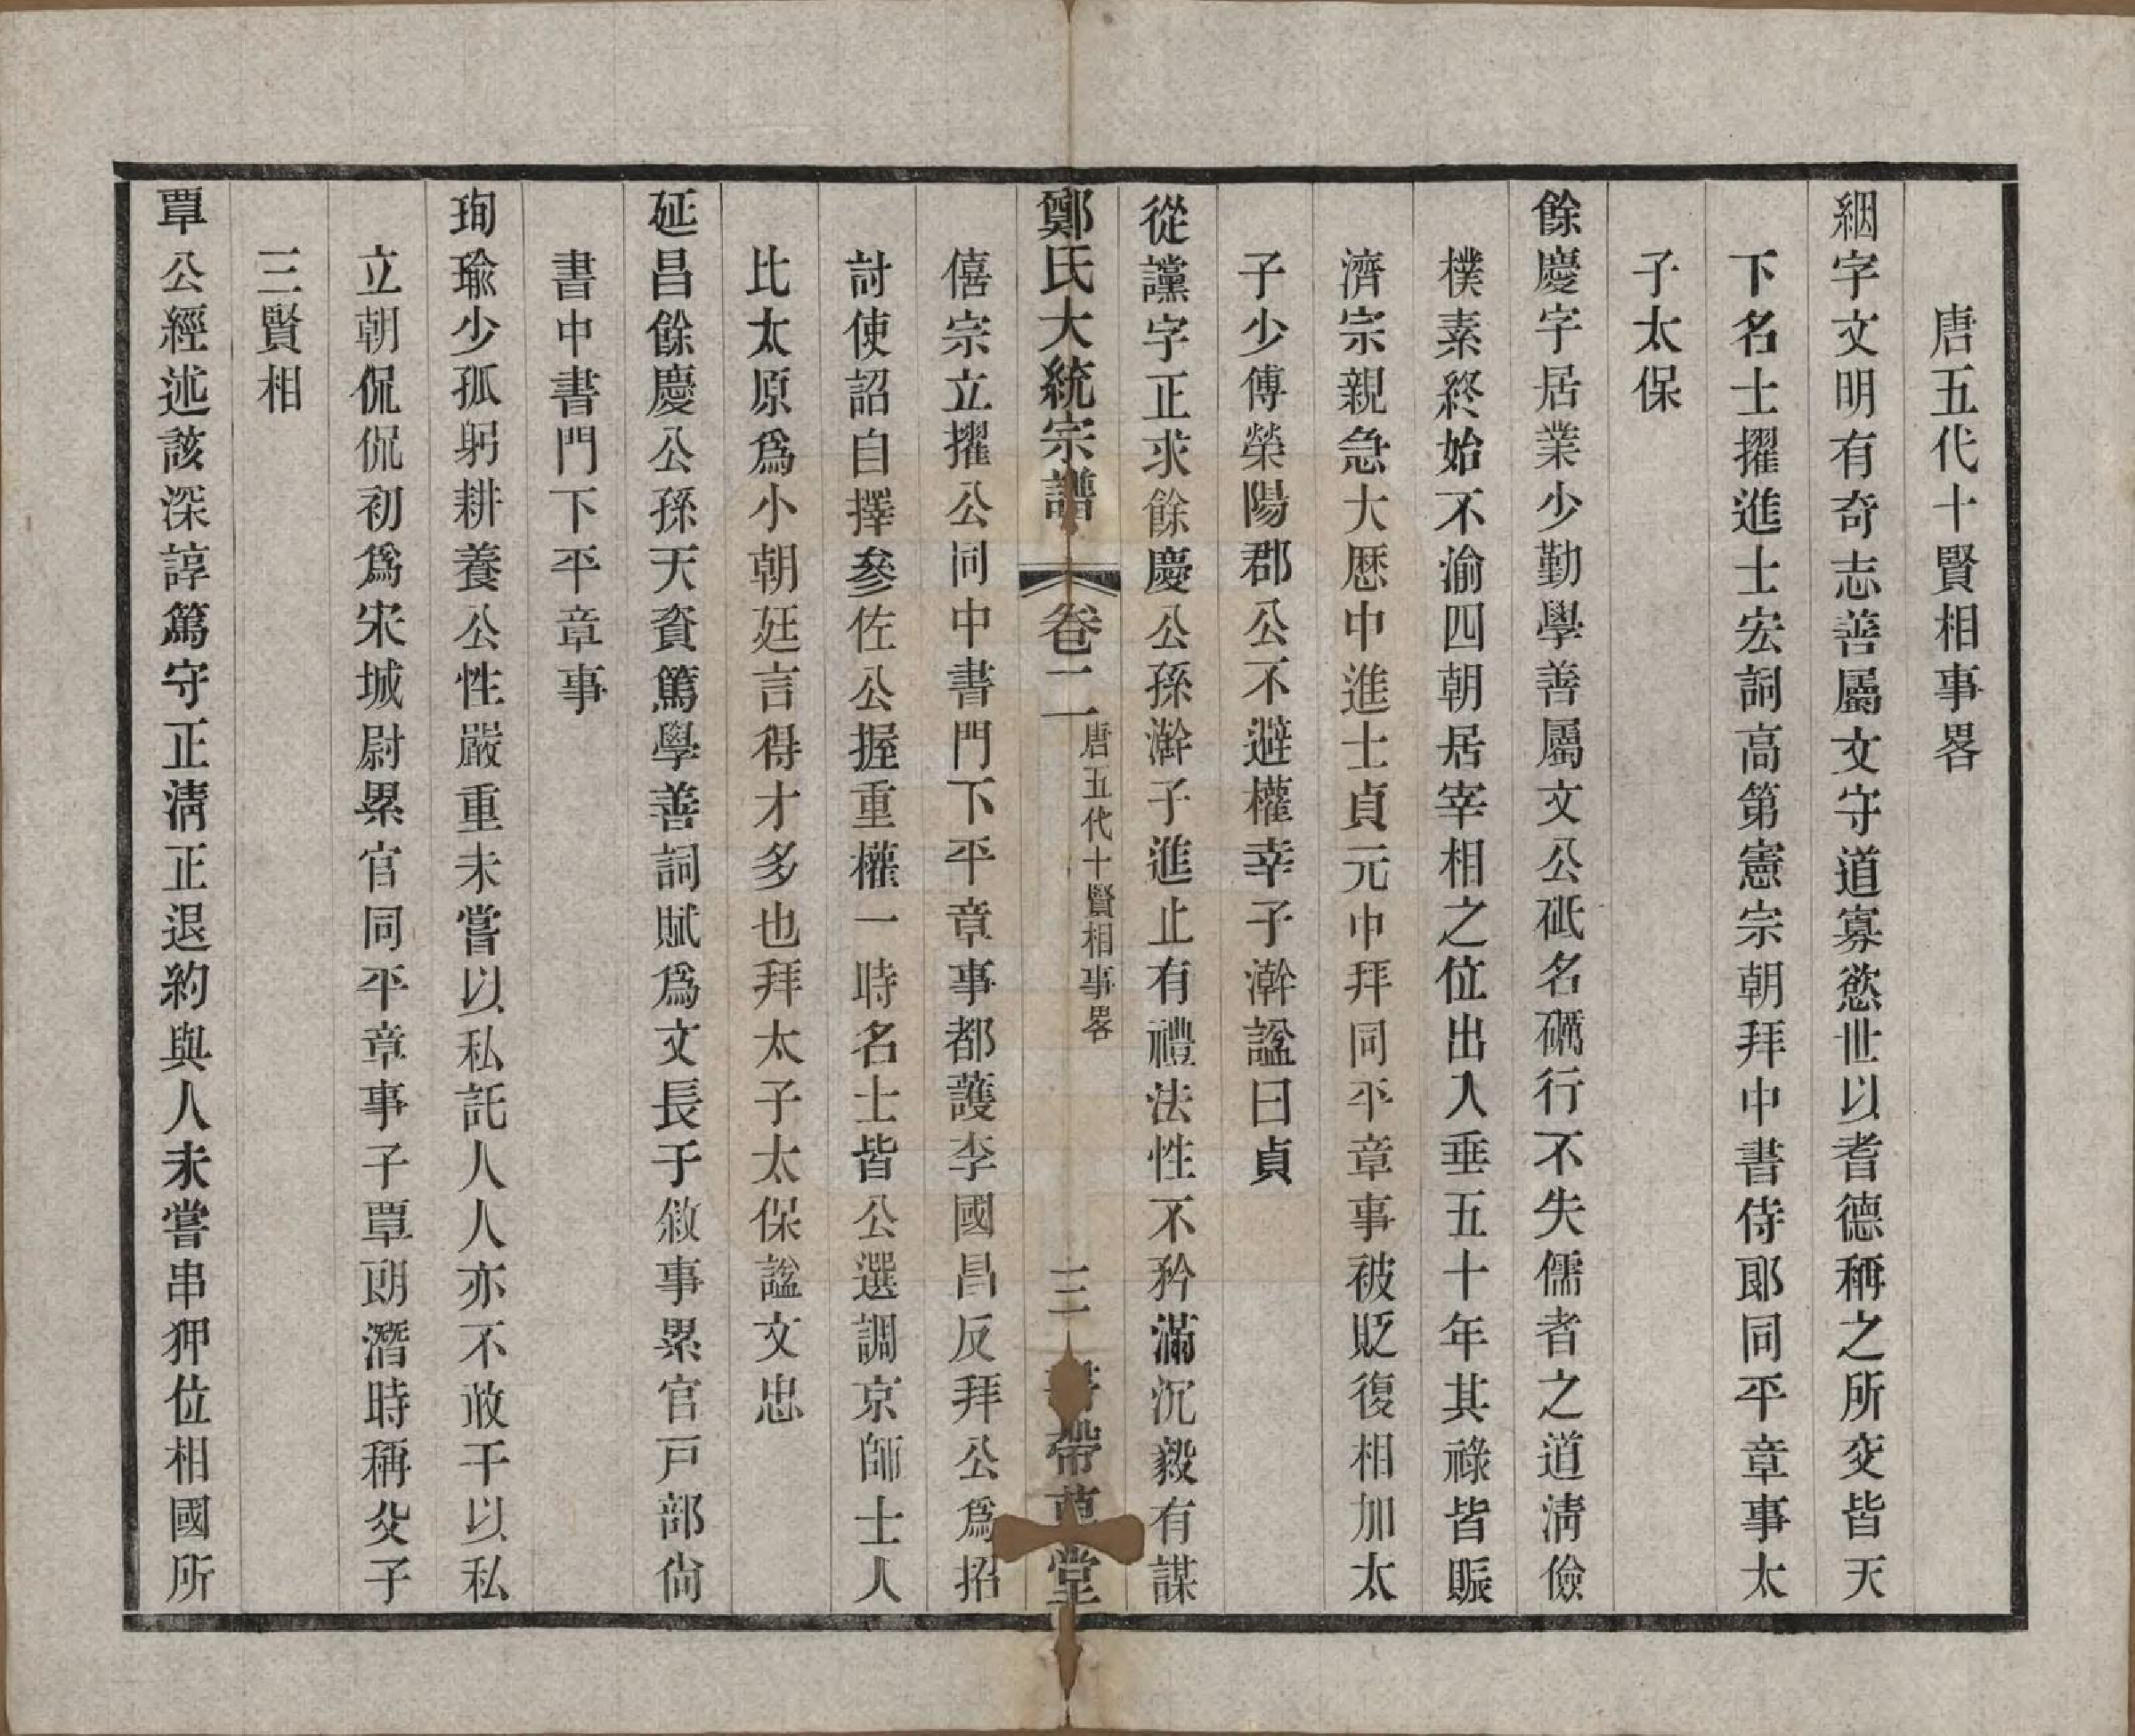 唐五代十賢相事畧
絪字文明有奇志善屬文守道寡慾世以耆德稱之所交皆天
下名士擢進士宏詞高第憲宗朝拜中書侍郎同平章事太
子太保
餘慶字居業少勤學善屬文公砥名礪行不失儒者之道淸儉
樸素終始不渝四朝居宰相之位出入垂五十年其祿皆賑
濟宗親急大厯中進士貞元中拜同平章事被貶復相加太
子少傅滎陽郡公不避權幸子澣諡曰貞
從讜字正求餘慶公孫澣子進止有禮法性不矜滿沉毅有謀
鄭氏大統宗譜 卷二 唐五代十賢相事畧 三 書帶草堂
僖宗立擢公同中書門下平章事都護李國昌反拜公爲招
討使詔自擇參佐公握重權一時名士皆公選調京師士人
比太原爲小朝廷言得才多也拜太子太保諡文忠
延昌餘慶公孫天資篤學善詞賦爲文長于敘事累官戸部尙
書中書門下平章事
珣瑜少孤躬耕養公性嚴重未嘗以私託人人亦不敢干以私
立朝侃侃初爲宋城尉累官同平章事子覃朗潛時稱父子
三賢相
覃公經述該深諄篤守正淸正退約與人未嘗串狎位相國所